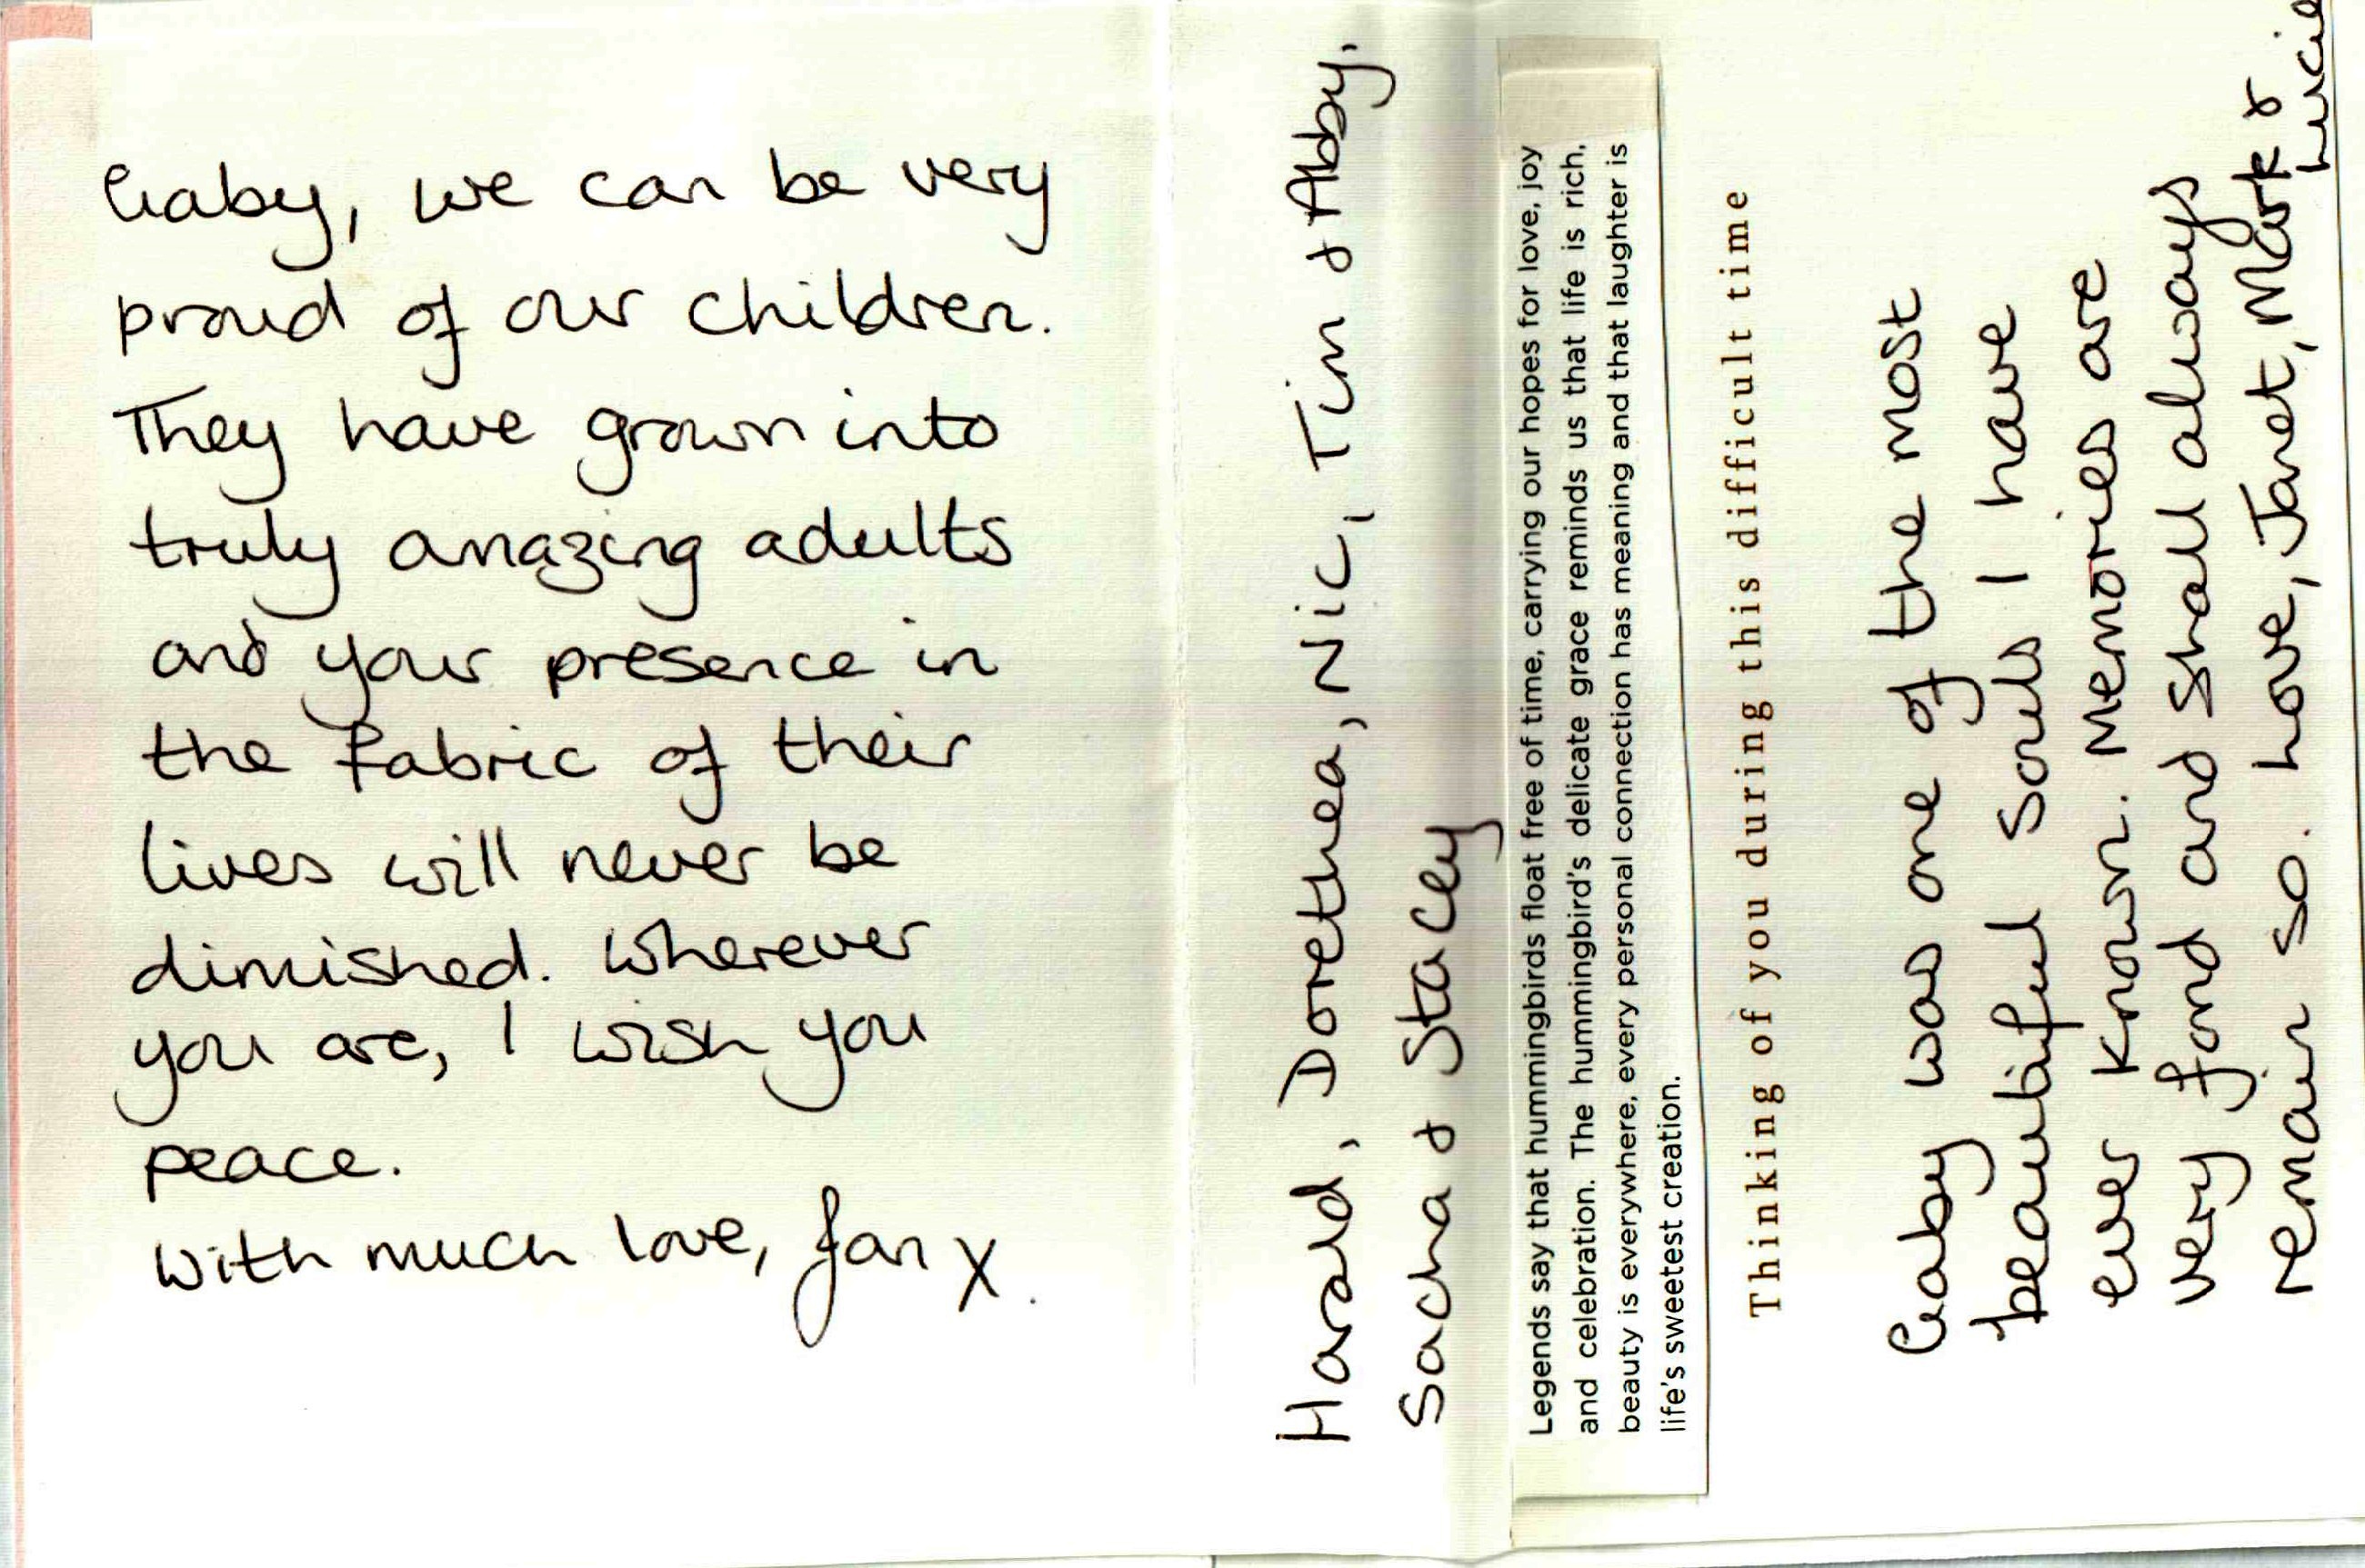 Gaby, we can be very
proud of our children.
They have grown into
truly amazing adults
and your presence in
the fabric of their
lives will never be
dimished. Wherever
you are, I wish you
peace.
With much love, Jan X.
Harald, Dorethea, Nic, Tim & Abby,
Sacha & Stacey
Legends say that hummingbirds float free of time, carrying our hopes for love, joy
and celebration. The hummingbird's delicate grace reminds us that life is rich,
beauty is everywhere, every personal connection has meaning and that laughter is
life's sweetest creation.
Thinking of you during this difficult time
Gaby was one of the most
beautiful souls I have
ever known. Memories are
very fond and shall always
remain so. Love, Janet, Mark &
Lucie